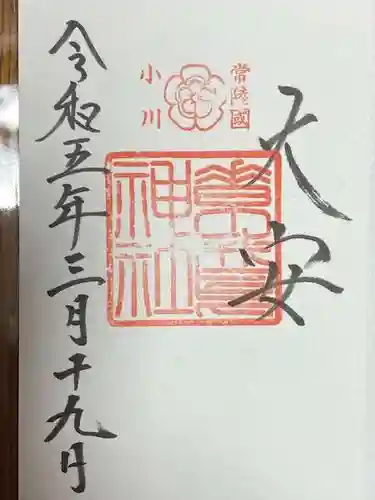 常陸國
小川
大安
素鵞
神社
令和五年三月十九日